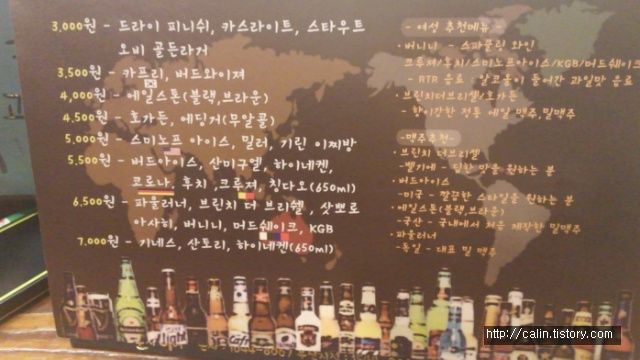 3,000원 - 드라이 피니쉬, 카스라이트, 스타우트
오비 골든라거
3,500원 - 카프리, 버드와이져
4,000원 - 에일스톤(블랙,브라운)
4,500원 - 호가든, 에딩거(무알콜)
5,000원 - 스미노프 아이스, 밀러, 기린 이찌방
5,500원 - 버드아이스, 산미구엘, 하이네켄,
코로나, 후치, 크루져, 칭다오(650ml)
6,500원 - 파울러너, 브린치 더 브리쉘, 삿뽀로
아사히, 버니니, 머드쉐이크, KGB
7,000원 - 기네스, 산토리, 하이네켄(650ml)
- 여성 추천메뉴 -
· 버니니 - 스파클링 와인
크루져/후치/스미노프아이스/KGB/머드쉐이크
- RTR 음료 : 알코올이 들어간 과일맛 음료
· 브린치더브리쉘/호가든
- 향이강한 정통 에일 맥주,밀맥주
-맥주추천-
· 브린치 더브리쉘
- 벨기에 - 진한 맛을 원하는 분
· 버드아이스
- 미국 - 깔끔한 스타일을 원하는 분
· 에일스톤(블랙,브라운)
- 국산 - 국내에서 처음 제작한 밀맥주
· 파울러너
- 독일 - 대표 밀 맥주
http://calin.tistory.com